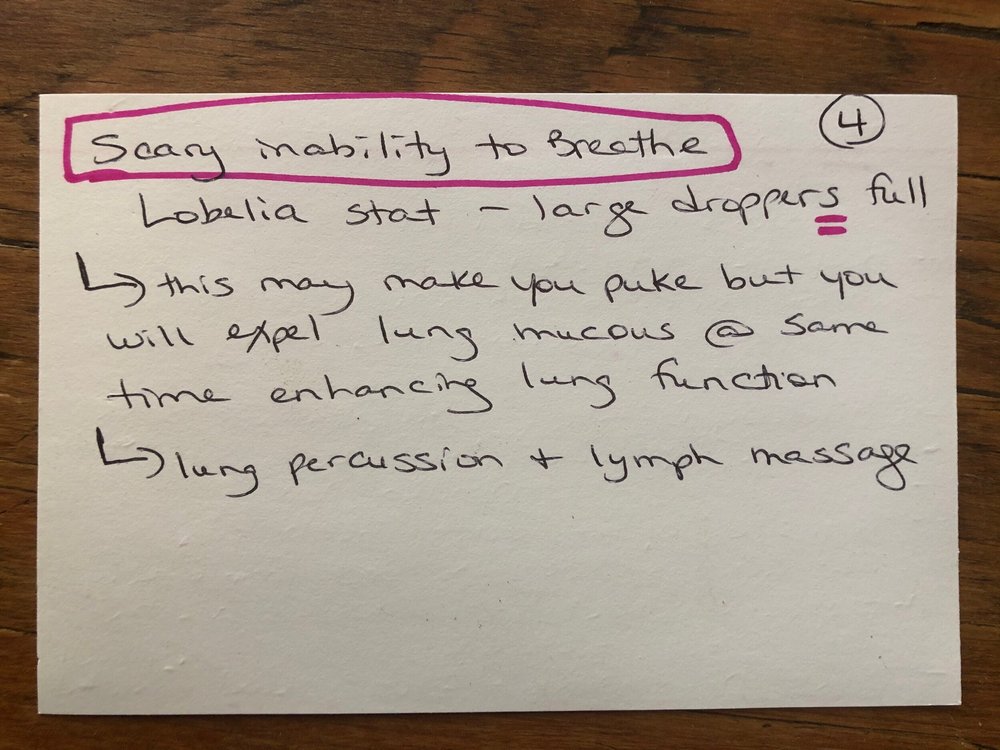 4
Scary inability to Breathe
Lobelia stat - large droppers full
↳ this may make you puke but you
will expel lung mucous @ same
time enhancing lung function
↳ lung percussion + lymph massage